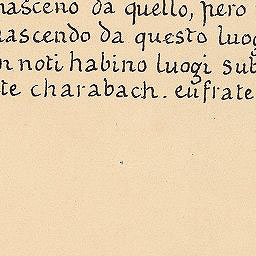 nasceno da quello, pero
nascendo da questo luog
n noti habino luogi sub
te charabach. eufrate